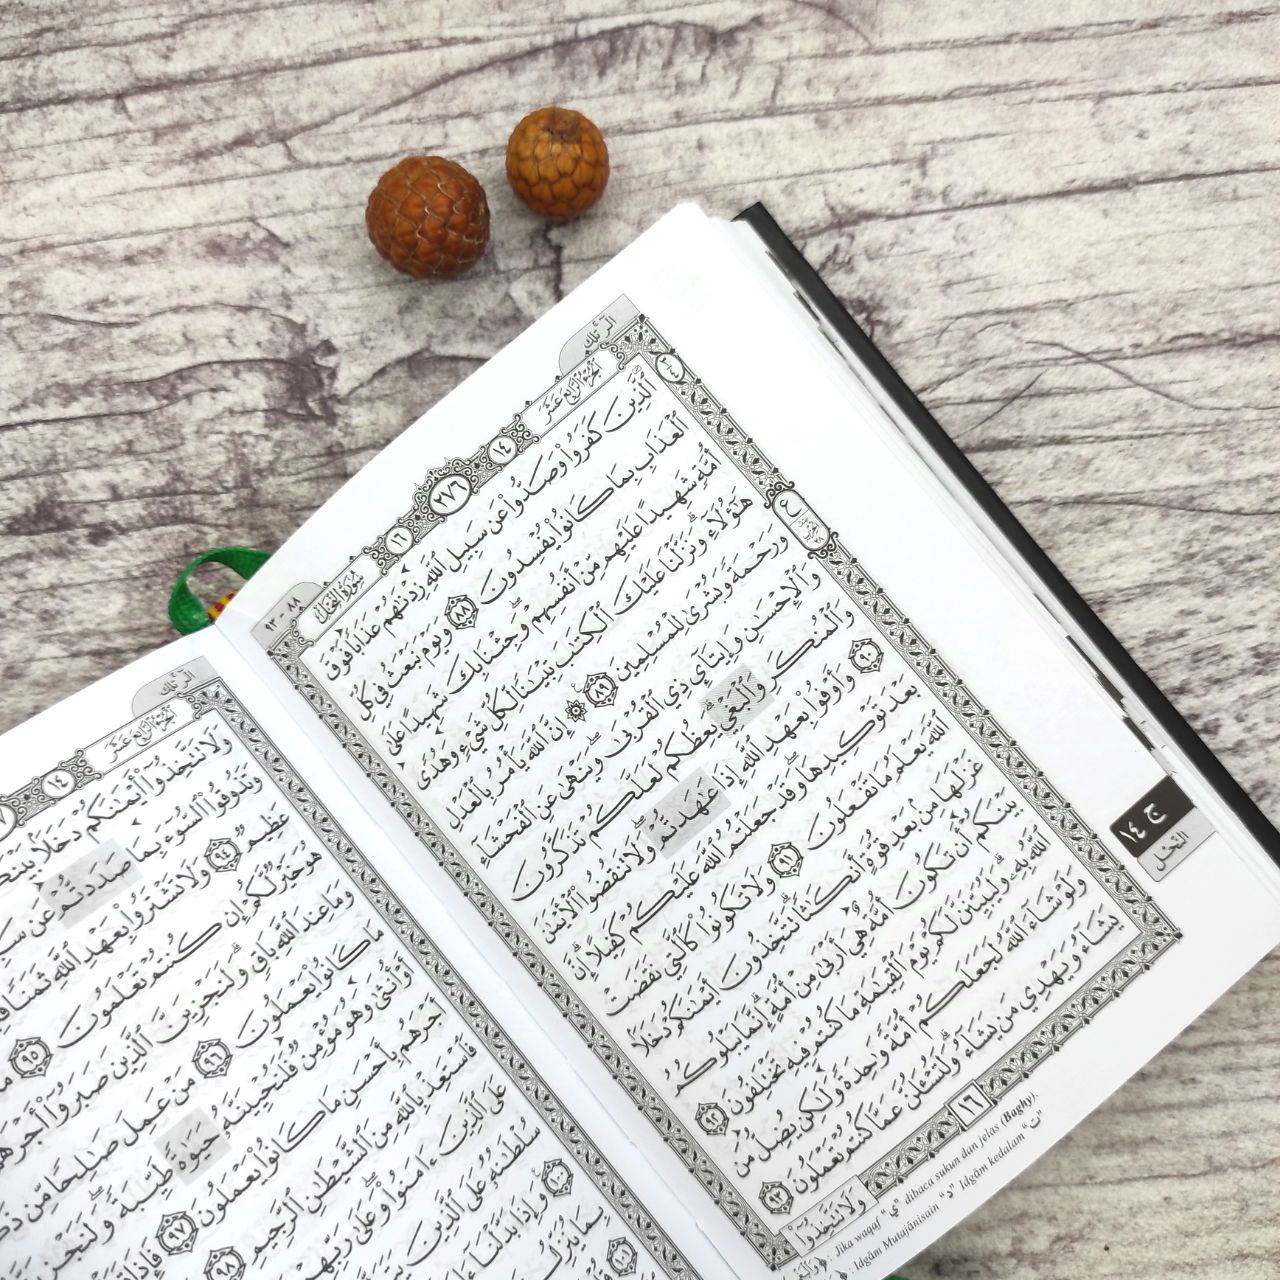 الٓرّتِلْكَ
الجُزْءُ الرَّابِعَ عَشَرَ
١٤
٢٧٦
١٦
سُورَةُ النَّحْلِ
٨٨ - ٩٣
ٱلَّذِينَ كَفَرُوا۟ وَصَدُّوا۟ عَن سَبِيلِ ٱللَّهِ زِدْنَٰهُمْ عَذَابًا فَوْقَ
ٱلْعَذَابِ بِمَا كَانُوا۟ يُفْسِدُونَ ٨٨ وَيَوْمَ نَبْعَثُ فِى كُلِّ
أُمَّةٍ شَهِيدًا عَلَيْهِم مِّنْ أَنفُسِهِمْ ۖ وَجِئْنَا بِكَ شَهِيدًا عَلَىٰ
هَٰٓؤُلَآءِ ۚ وَنَزَّلْنَا عَلَيْكَ ٱلْكِتَٰبَ تِبْيَٰنًا لِّكُلِّ شَىْءٍ وَهُدًى
وَرَحْمَةً وَبُشْرَىٰ لِلْمُسْلِمِينَ ٨٩ ۞ إِنَّ ٱللَّهَ يَأْمُرُ بِٱلْعَدْلِ
وَٱلْإِحْسَٰنِ وَإِيتَآئِ ذِى ٱلْقُرْبَىٰ وَيَنْهَىٰ عَنِ ٱلْفَحْشَآءِ
وَٱلْمُنكَرِ وَٱلْبَغْىِ ۚ يَعِظُكُمْ لَعَلَّكُمْ تَذَكَّرُونَ
٩٠ وَأَوْفُوا۟ بِعَهْدِ ٱللَّهِ إِذَا عَٰهَدتُّمْ وَلَا تَنقُضُوا۟ ٱلْأَيْمَٰنَ
بَعْدَ تَوْكِيدِهَا وَقَدْ جَعَلْتُمُ ٱللَّهَ عَلَيْكُمْ كَفِيلًا ۚ إِنَّ
ٱللَّهَ يَعْلَمُ مَا تَفْعَلُونَ ٩١ وَلَا تَكُونُوا۟ كَٱلَّتِى نَقَضَتْ
غَزْلَهَا مِنۢ بَعْدِ قُوَّةٍ أَنكَٰثًا تَتَّخِذُونَ أَيْمَٰنَكُمْ دَخَلًۢا
بَيْنَكُمْ أَن تَكُونَ أُمَّةٌ هِىَ أَرْبَىٰ مِنْ أُمَّةٍ ۚ إِنَّمَا يَبْلُوكُمُ
ٱللَّهُ بِهِۦ ۚ وَلَيُبَيِّنَنَّ لَكُمْ يَوْمَ ٱلْقِيَٰمَةِ مَا كُنتُمْ فِيهِ تَخْتَلِفُونَ ٩٢
وَلَوْ شَآءَ ٱللَّهُ لَجَعَلَكُمْ أُمَّةً وَٰحِدَةً وَلَٰكِن يُضِلُّ مَن
يَشَآءُ وَيَهْدِى مَن يَشَآءُ ۚ وَلَتُسْـَٔلُنَّ عَمَّا كُنتُمْ تَعْمَلُونَ ٩٣
١٦
وَلَا تَتَّخِذُوٓا۟
ج ١٤
النّحل
: Jika waqaf "ي" dibaca sukun dan jelas (Baghy)
: Idgâm Mutajânisain "د" Idgâm kedalam "ت"
الٓرّتِلْكَ
الجُزْءُ الرَّابِعَ عَشَرَ
١٤
وَلَا تَتَّخِذُوٓا۟ أَيْمَٰنَكُمْ دَخَلًۢا
وَتَذُوقُوا۟ ٱلسُّوٓءَ بِمَا صَدَدتُّمْ عَن
عَظِيمٌ ٩٤ وَلَا تَشْتَرُوا۟ بِعَهْدِ ٱللَّهِ ثَمَنًا
هُوَ خَيْرٌ لَّكُمْ إِن كُنتُمْ تَعْلَمُونَ ٩٥
وَمَا عِندَ ٱللَّهِ بَاقٍ ۗ وَلَنَجْزِيَنَّ ٱلَّذِينَ صَبَرُوٓا۟ أَجْرَهُم
مَا كَانُوا۟ يَعْمَلُونَ ٩٦ مَنْ عَمِلَ صَٰلِحًا مِّن
أَوْ أُنثَىٰ وَهُوَ مُؤْمِنٌ فَلَنُحْيِيَنَّهُۥ حَيَوٰةً طَيِّبَةً ۖ
أَجْرَهُم بِأَحْسَنِ مَا كَانُوا۟ يَعْمَلُونَ ٩٧ فَإِذَا
فَٱسْتَعِذْ بِٱللَّهِ مِنَ ٱلشَّيْطَٰنِ ٱلرَّجِيمِ ٩٨
عَلَى ٱلَّذِينَ ءَامَنُوا۟ وَعَلَىٰ رَبِّهِمْ
سُلْطَٰنُهُۥ عَلَى ٱلَّذِينَ
١٠٠ وَإِذَا بَدَّلْنَآ
بِمَا يُنَزِّلُ
١٠١